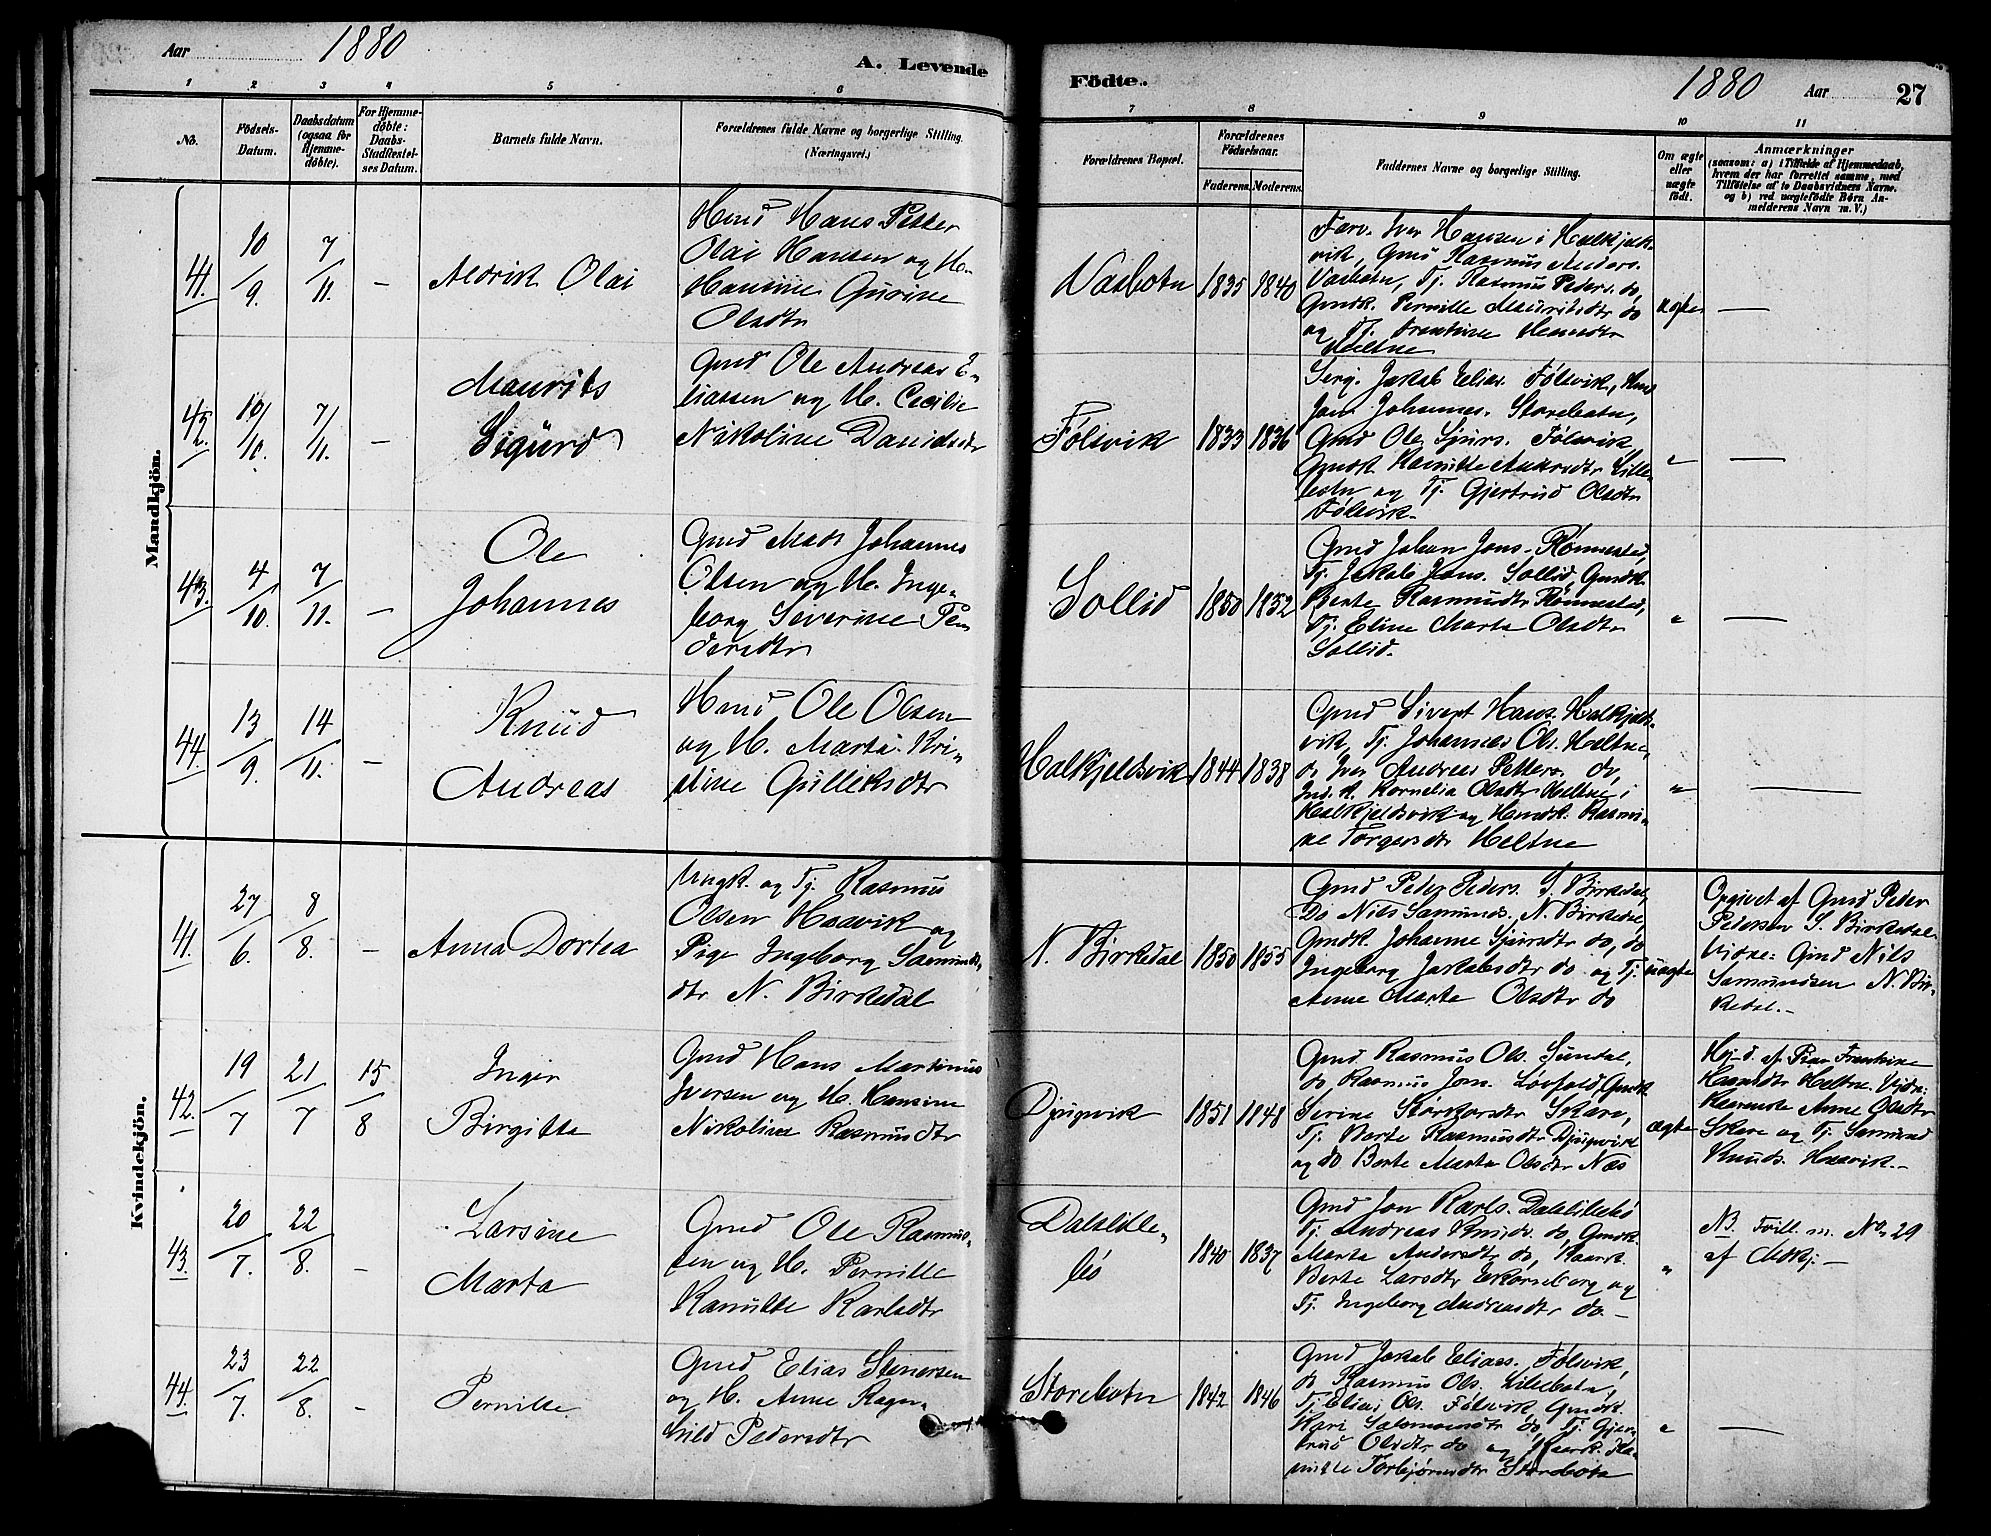 Aar 1880
A. Levende
Födte.
1880 Aar 27
1 2 3 4 5 6 7 8 9 10 11
No.
Födsels-
Datum.
Daabsdatum
(ogsaa for
Hjemme-
døbte).
For Hjemme-
døbte:
Daabs-
Stadfestel-
ses Datum.
Barnets fulde Navn.
Forældrenes fulde Navne og borgerlige Stilling.
(Næringsvei.)
Forældrenes Bopæl.
Forældrenes
Födselsaar.
Faderens. Moderens.
Faddernes Navne og borgerlige Stilling.
Om ægte
eller
uægte
født.
Anmærkninger
(saasom: a) i Tilfælde af Hjemmedaab,
hvem der har forrettet samme, med
Tilføielse af to Daabsvidners Navne,
og b) ved uægtefødte Børn An-
melderens Navn m. V.)
Mandkjön.
41. 10/9. 7/11. -
Aldrik Olai
Hmd Hans Petter
Olai Hansen og H.
Hansine Gurine
Olsdtr
Vasbotn 1835 1840
Farv. Iver Hansen i Halkjels-
vik, Gmd Rasmus Anders.
Vasbotn, Tj. Rasmus Peders. do,
Gmdk. Pernille Mauritsdtr do
og Tj.
Heltne
ægte —
42. 10/10. 7/11. -
Maurits
Sigurd
Gmd Ole Andreas E-
liassen og H. Cecilie
Nikoline Davidsdtr
Fólsvik 1833 1836
Serg. Jakob Elias. Fólsvik,
Johannes. Storebotn,
Gmd Ole Sjurs. Fólsvik,
Gmdk. Lille-
botn og Tj. Gjertrud Olsdtr
Fólsvik.
" —
43. 4/10. 7/11. -
Ole
Johannes
Gmd Mads Johannes
Olsen og H. Inge-
borg Severine Pe-
dersdtr
Sollid 1850 1852
Gmd Johan Jons. Rónnestad
Tj. Jakob Jons. Sollid, Gmdk.
Berte Rasmusdtr Rónnestad,
Tj. Eline Marta Olsdtr
Sollid.
" —
44. 13/9. 14/11. -
Knud
Andreas
Hmd Ole Olsen
og H. Marta Kri-
stine Gulleksdtr
Halkjeldsvik 1844 1838
Gmd Sivert Hans. Halkjelds-
vik, Tj. Johannes Ols. Heltne,
do Iver Andreas Petters. do,
Ind. k. Kornelia Olsdtr Heltne i
Halkjeldsvik og Hmdk. Rasmi-
ne Torgersdtr Heltne
" —
Kvindekjön.
41. 27/6. 8/8. -
Anna Dortea
Ungk. og Tj. Rasmus
Olsen Haavik og
Pige Ingeborg Samunds-
dtr N. Birkedal
N. Birkedal 1850 1855
Gmd Peder Peders. S. Birkedal,
Do Nils Samunds. N. Birkedal,
Gmdk. Johanne Sjursdtr do, do
Ingeborg Jakobsdtr do og Tj.
Anne Marta Olsdtr do
uægte
Opgivet af Gmd Peder
Pedersen S. Birkedal.
Vidne: Gmd Nils
Samundsen N. Bir-
kedal.-
42. 19/7 21/7 15/8
Inger
Birgitte
Gmd Hans Martinus
Iversen og H. Hansine
Nikoline Rasmusdtr
Djupvik 1851 1848
Gmd Rasmus Ols. Sundal,
do Rasmus Jons. Lóvfold, Gmdk
Serine Storkorsdtr Skare,
Tj. Berte Rasmusdtr Djupvik
og do Berte Marta Olsdtr Næs
ægte
Hj-d. af Frantsine
Heltne. Vidn:
Anne Olsdtr
Skare og Tj. Samund
Knuds. Haavik.-
43. 20/7. 22/8. -
Larsine
Marta
Gmd Ole Rasmus-
sen og H. Pernille
Karlsdtr
Dalslille-
bó
1840 1837
Gmd Jon Karls. Dalslillebó
Tj. Andreas Knuds. do, Gmdk.
Marta Andersdtr do, Kaark.
Berte Larsdtr og
Tj. Ingeborg Andreasdtr do.-
"
NB. Tvill. m. No. 29
af Mdkj.-
44. 23/7. 22/8. -
Pernille
Gmd Elias Steinersen
og H. Anne Ragn-
hild Pedersdtr
Storebotn 1842 1846
Gmd Jakob Eliass. Fólsvik,
do Rasmus Ols. Lillebotn,
Tj. Elias Ols. Fólsvik, Gmdk.
Kari Salomonsdtr do, Tj. Gjer-
trud Olsdtr do og Kaark.
Torbjórnsdtr Storebotn
" —